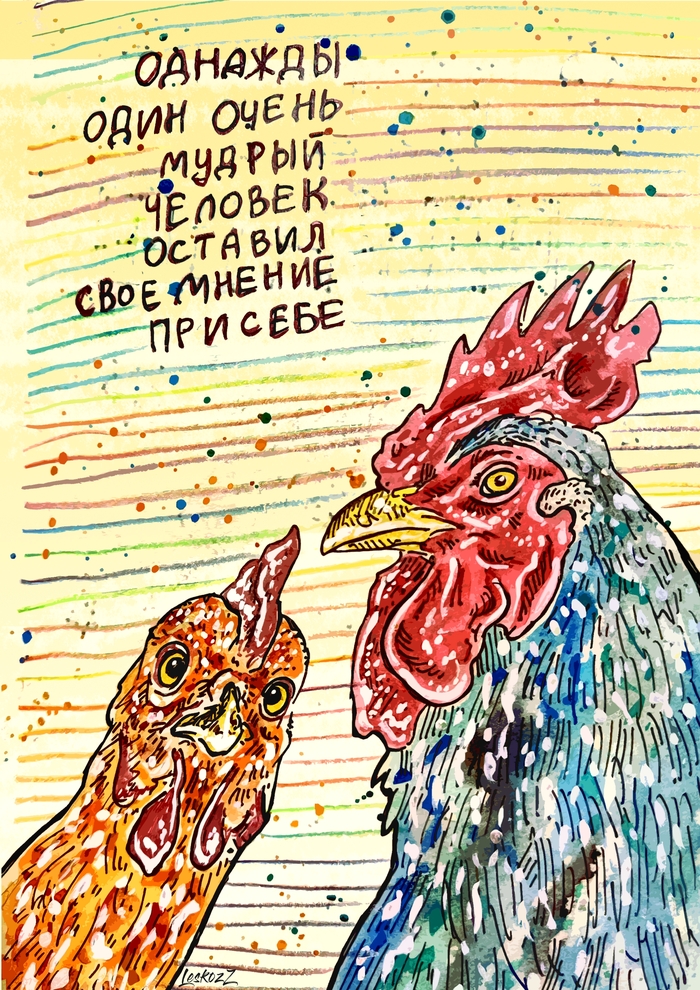 ОДНАЖДЫ
ОДИН ОЧЕНЬ
МУДРЫЙ
ЧЕЛОВЕК
ОСТАВИЛ
СВОЕ МНЕНИЕ
ПРИ СЕБЕ
LeskozZ